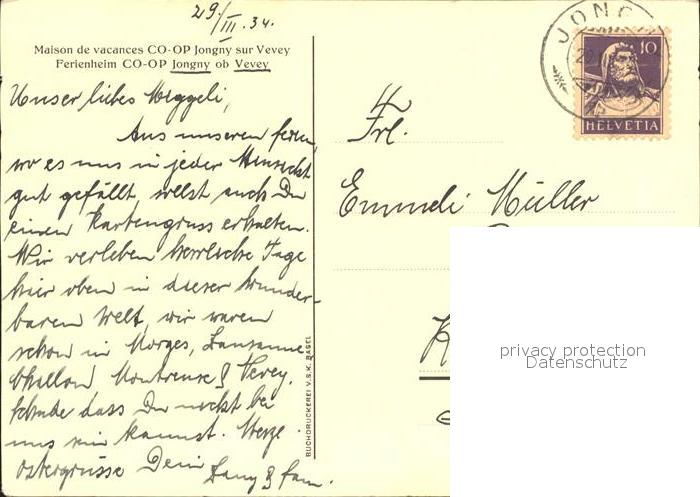 29/III. 34.
Maison de vacances CO-OP Jongny sur Vevey
Ferienheim CO-OP Jongny ob Vevey
Unser liebes Meggeli,
Aus unseren ferien,
wo es uns in jeder Hinsicht
gut gefällt, sollst auch Du
einen Kartengruss erhalten.
Wir verleben herrliche Tage
hier oben in dieser wunder-
baren Welt, wir waren
schon in Morges, Lausanne
Chillon Montreux & Vevey.
Schade dass Du nicht bei
uns sein kannst. Herzl.
Ostergrüsse Dein
& fam.
BUCHDRUCKEREI V.S.K. BASEL
JONG
10
HELVETIA
Frl.
Emmeli Müller
K
privacy protection
Datenschutz